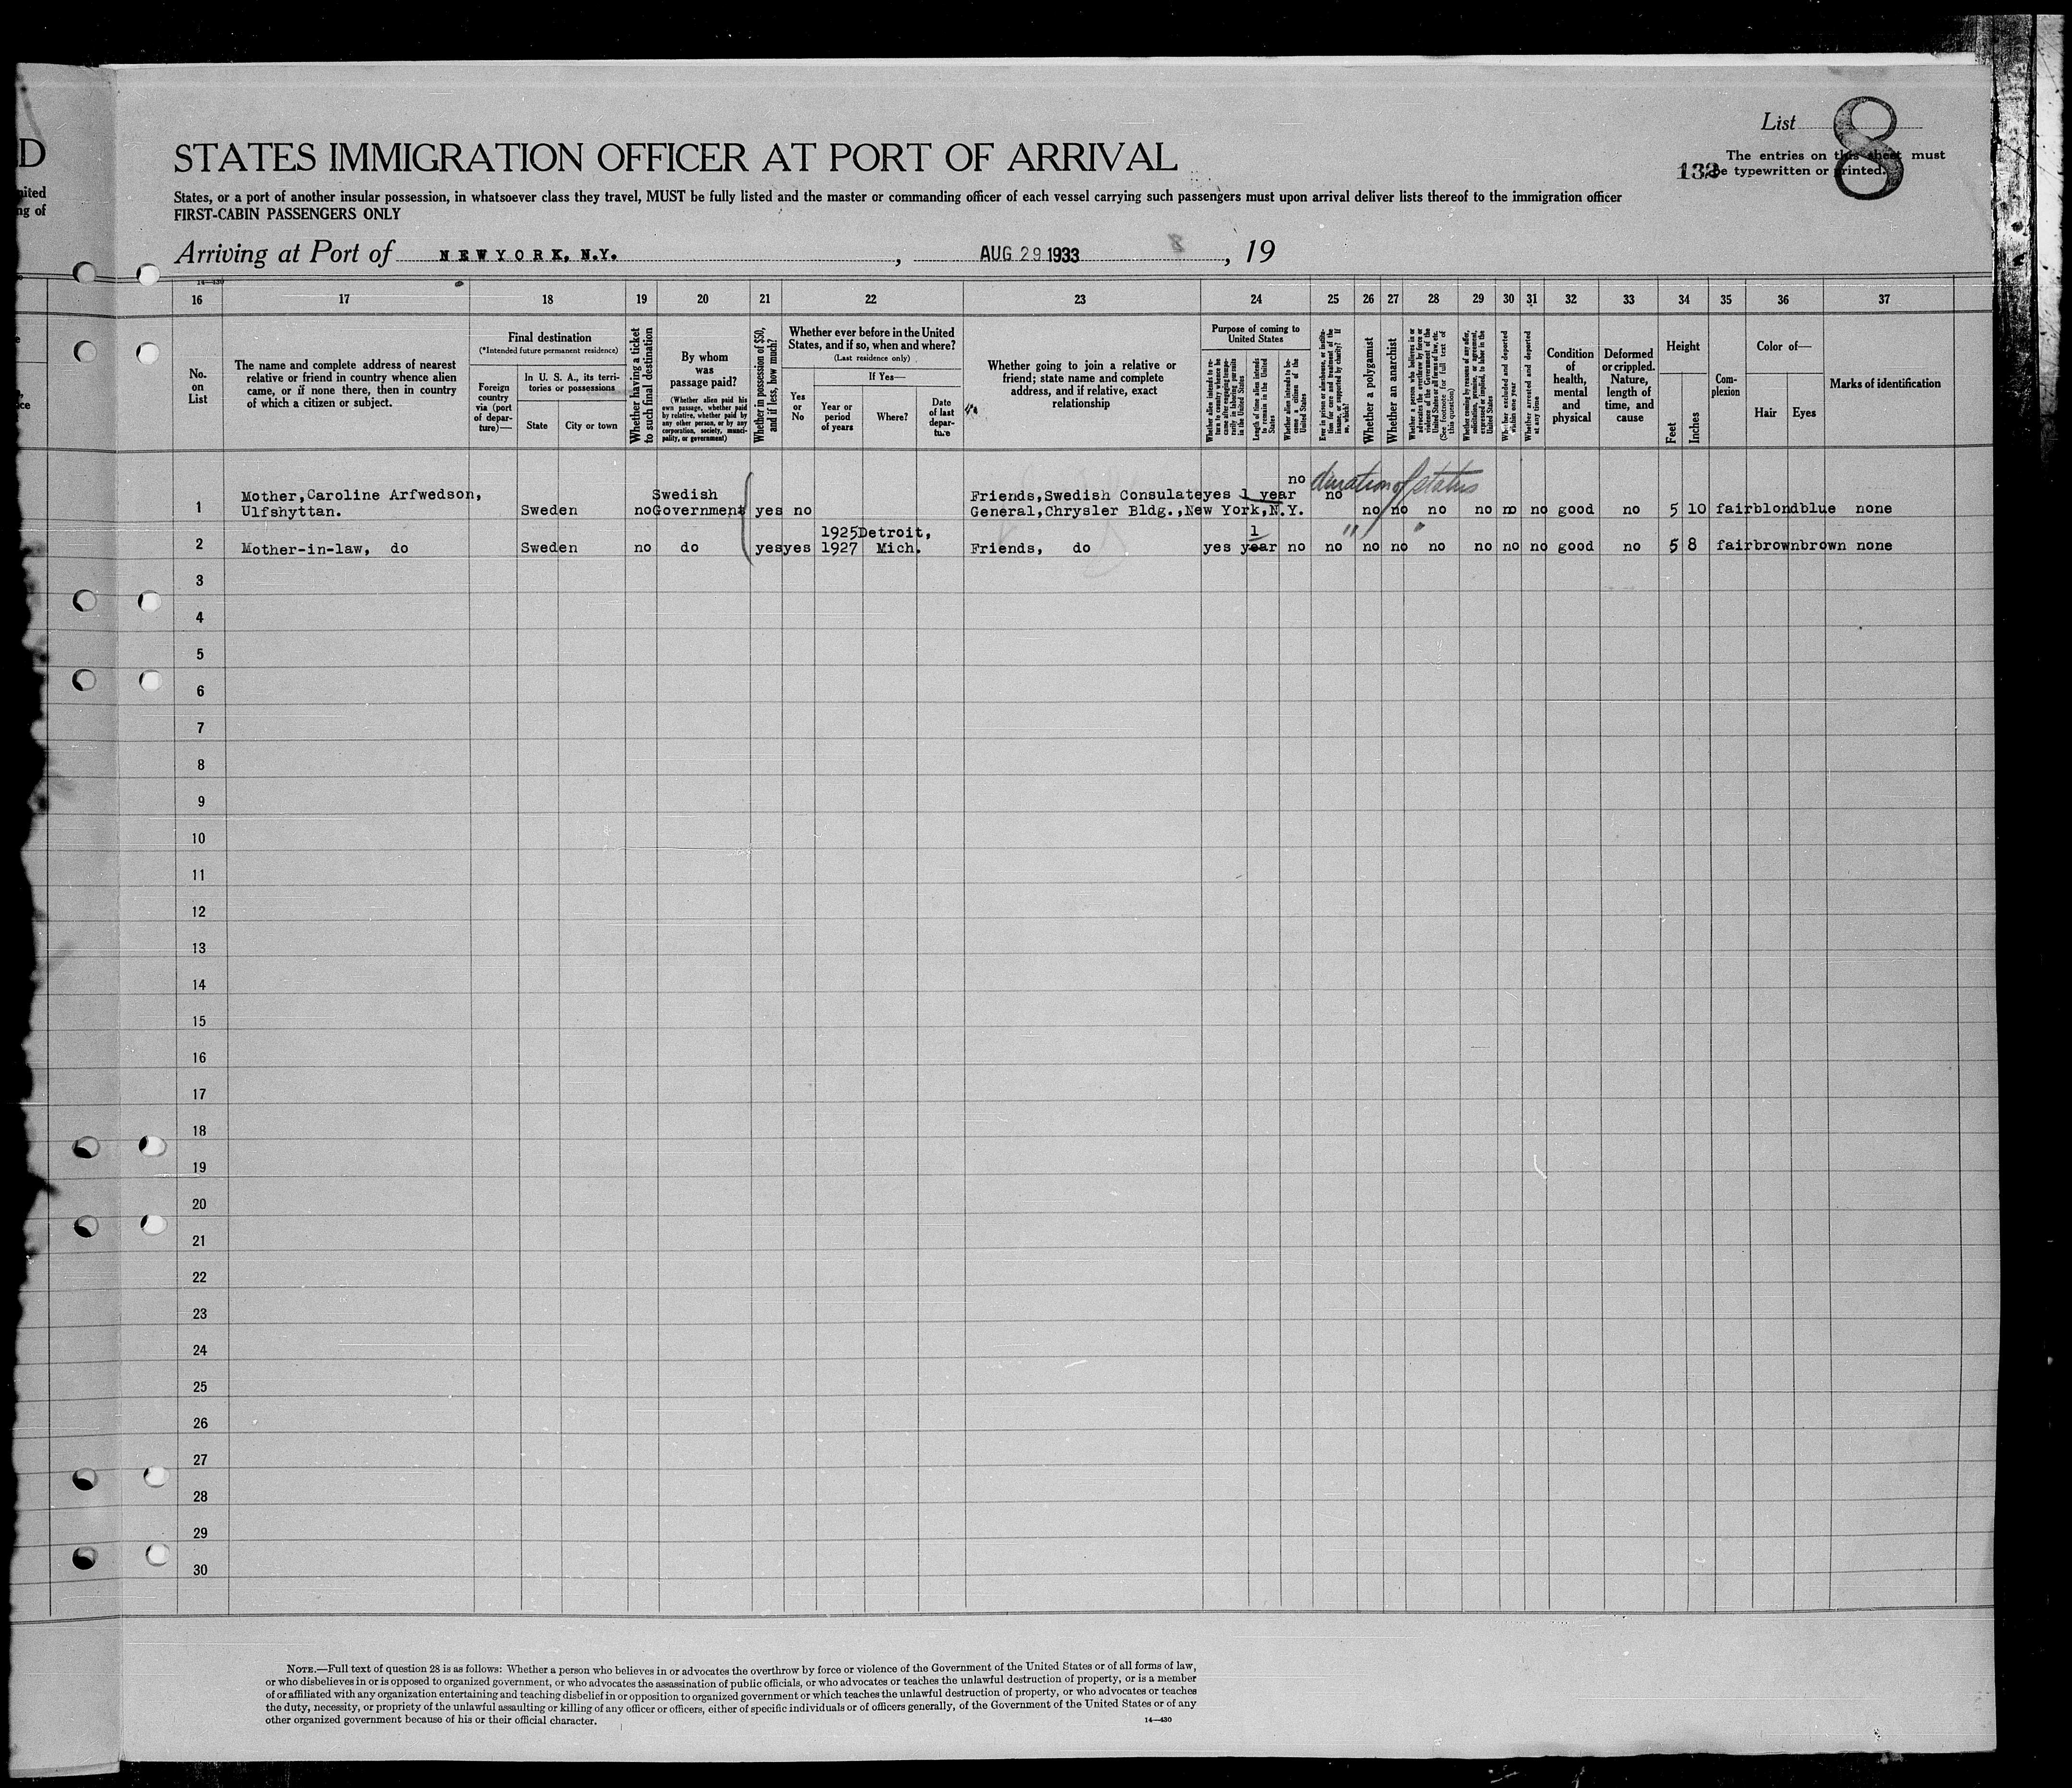 D
nited
ng of
List 8
STATES IMMIGRATION OFFICER AT PORT OF ARRIVAL
The entries on this sheet must
be typewritten or printed.
132
States, or a port of another insular possession, in whatsoever class they travel, MUST be fully listed and the master or commanding officer of each vessel carrying such passengers must upon arrival deliver lists thereof to the immigration officer
FIRST-CABIN PASSENGERS ONLY
Arriving at Port of NEWYORK, N.Y. , AUG 29 1933 8 , 19
14—430
16 17 18 19 20 21 22 23 24 25 26 27 28 29 30 31 32 33 34 35 36 37
No. on List
The name and complete address of nearest relative or friend in country whence alien came, or if none there, then in country of which a citizen or subject.
Final destination
(*Intended future permanent residence)
Foreign country via (port of departure)—
In U. S. A., its territories or possessions
State
City or town
Whether having a ticket to such final destination
By whom was passage paid?
(Whether alien paid his own passage, whether paid by relative, whether paid by any other person, or by any corporation, society, municipality, or government)
Whether in possession of $50, and if less, how much?
Whether ever before in the United States, and if so, when and where?
(Last residence only)
Yes or No
If Yes—
Year or period of years
Where?
Date of last departure
Whether going to join a relative or friend; state name and complete address, and if relative, exact relationship
Purpose of coming to United States
Whether alien intends to return to country whence he came after engaging temporarily in laboring pursuits in the United States
Length of time alien intends to remain in the United States
Whether alien intends to become a citizen of the United States
Ever in prison or almshouse, or institution for care and treatment of the insane, or supported by charity? If so, which?
Whether a polygamist
Whether an anarchist
Whether a person who believes in or advocates the overthrow by force or violence of the Government of the United States or all forms of law, etc. (See footnote for full text of this question)
Whether coming by reasons of any offer, solicitation, promise, or agreement, expressed or implied, to labor in the United States
Whether excluded and deported within one year
Whether arrested and deported at any time
Condition of health, mental and physical
Deformed or crippled. Nature, length of time, and cause
Height
Feet
Inches
Complexion
Color of—
Hair
Eyes
Marks of identification
no duration of status
Mother,Caroline Arfwedson, Swedish Friends,Swedish Consulate yes 1 year no
1 Ulfshyttan. Sweden no Government yes no General,Chrysler Bldg.,New York,N.Y. no no no no no no good no 5 10 fair blond blue none
1925 Detroit, 1 " "
2 Mother-in-law, do Sweden no do yes yes 1927 Mich. Friends, do yes year no no no no no no no no good no 5 8 fair brown brown none
3
4
5
6
7
8
9
10
11
12
13
14
15
16
17
18
19
20
21
22
23
24
25
26
27
28
29
30
NOTE.—Full text of question 28 is as follows: Whether a person who believes in or advocates the overthrow by force or violence of the Government of the United States or of all forms of law,
or who disbelieves in or is opposed to organized government, or who advocates the assassination of public officials, or who advocates or teaches the unlawful destruction of property, or is a member
of or affiliated with any organization entertaining and teaching disbelief in or opposition to organized government or which teaches the unlawful destruction of property, or who advocates or teaches
the duty, necessity, or propriety of the unlawful assaulting or killing of any officer or officers, either of specific individuals or of officers generally, of the Government of the United States or of any
other organized government because of his or their official character.
14—430